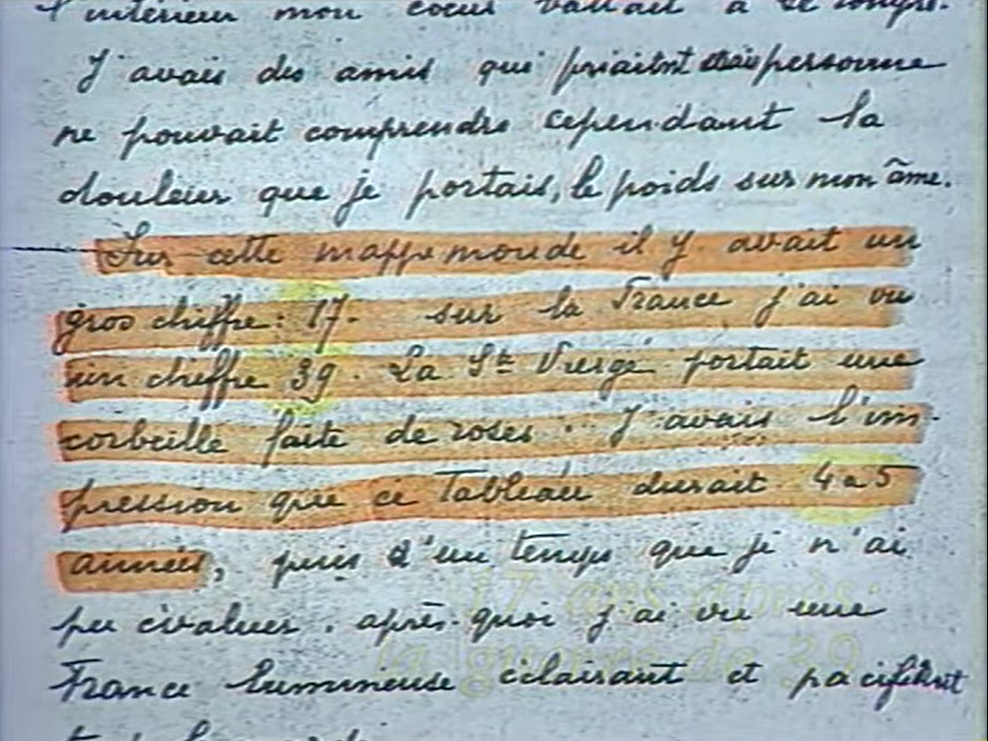 l'intérieur mon coeur battait à se rompre.
J'avais des amis qui priaient mais personne
ne pouvait comprendre cependant la
douleur que je portais, le poids sur mon âme.
Sur cette mappemonde il y avait un
gros chiffre : 17. sur la France j'ai vu
un chiffre 39. La Ste Vierge portait une
corbeille faite de roses. J'avais l'im-
pression que ce tableau durait 4 à 5
années, puis d'un temps que je n'ai
pu évaluer. après quoi j'ai vu une
17 ans après:
la guerre de 39
France lumineuse éclairant et pacifiant